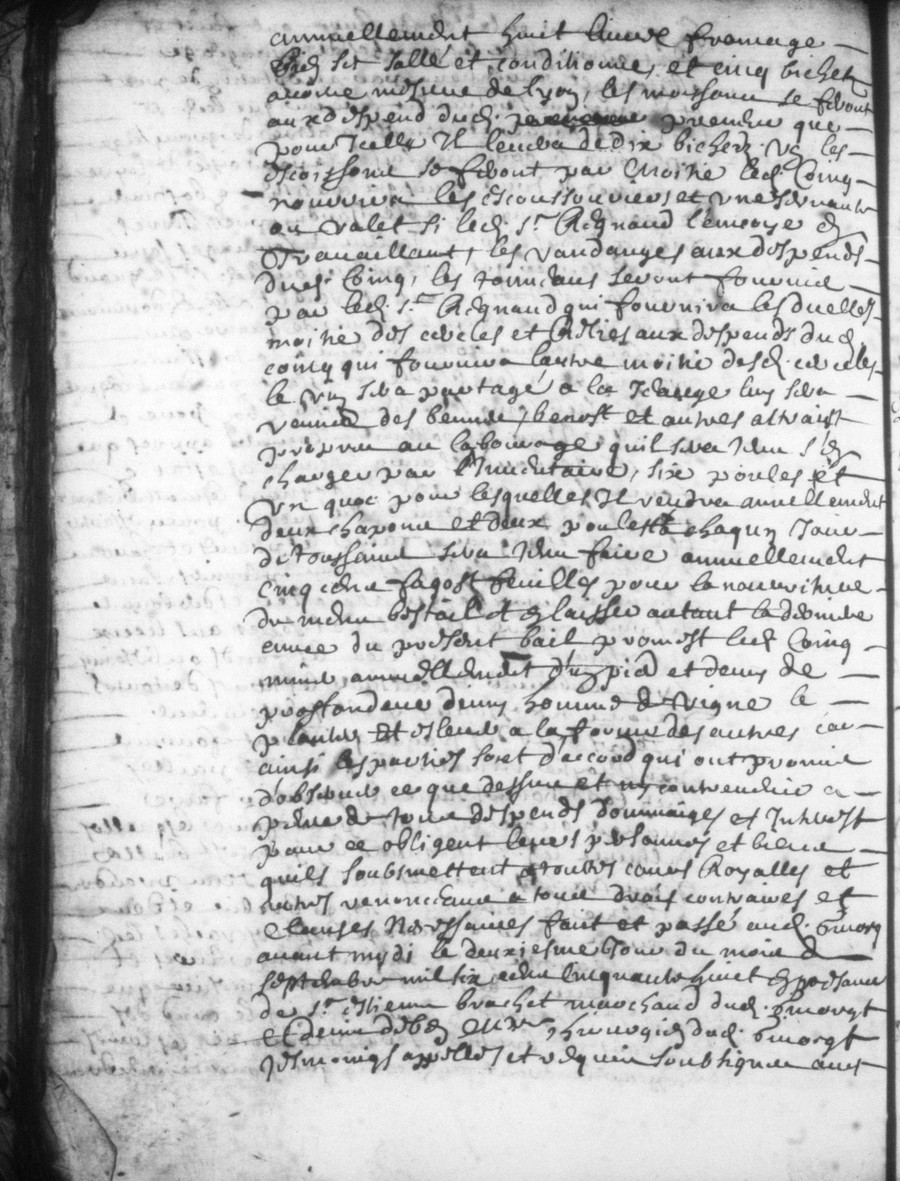 annuellement huit livres fromage
bien sec sallé et conditionné, et cinq bichets
avoine mesure de lyon, les moissons se feront
aux despend dud. preneur que
pour icelle il levera de dix bichets un les
escoissons se feront par moitié led. Coing
nourrira les escoussouviers et une servante
ou valet si led. Sr. Reynaud l'envoye en
travaillant, les vandanges aux despends
dud. Coing, les tonneaux seront fournis
par led. Sr. Reynaud qui fournira les duelles
moitié des cercles et aux despends dud.
Coing qui fournira lautre moitié desd. cercles
le vin sera partagé a la luy sera
des bennes, benost et autres attraist
propres au labourage quil sera tenu s'en
charger par l'inventaire, six poules et
un quoc pour lesquelles il rendra annuellement
deux chapons et deux poulest a chaqun jour
de toussaint sera tenu faire annuellement
cinq cens fagost feuilles pour la nourriture
du menu bestail et en laisser autant la derniere
annee du present bail promest led. Coing
miner annuellement d'un pied et demy de
proffondeur d'un homme de vigne le
planter et eslever a la forme des autres car
ainsi les parties sont d'accord qui ont promis
d'observer ce que dessus et ny contrevenir a
peine de tous despends dommaiges et interest
pour ce obligent leurs personnes et biens
quils soubsmettent a toutes cours Royalles et
autres renonceant a tous droits contraires et
clauses necessaires fait et passé aud.
avant mydi le deuxiesme jour du mois de
septembre mil six cens cinquante huict en presence
de Sr. Estienne brachet marchand dud.
et chirurgien dud.
tesmoings appelles et requis soubsignes avec